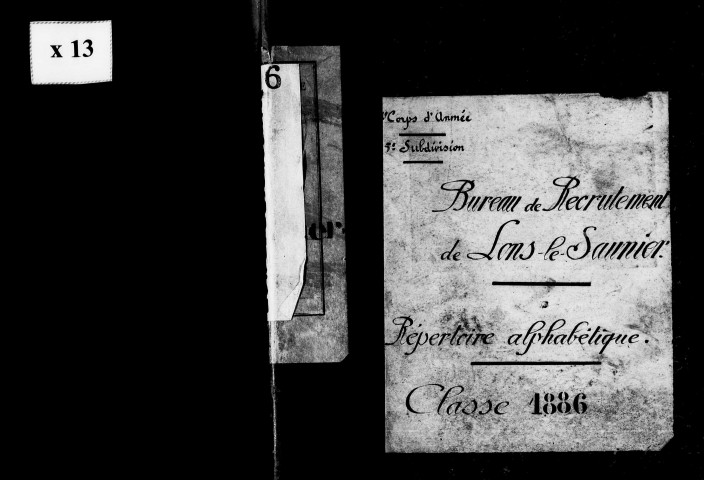 x 13
6
er.
Corps d'Armée
5e Subdivision
Bureau de Recrutement
de Lons-le-Saunier.
Répertoire alphabétique.
Classe 1886